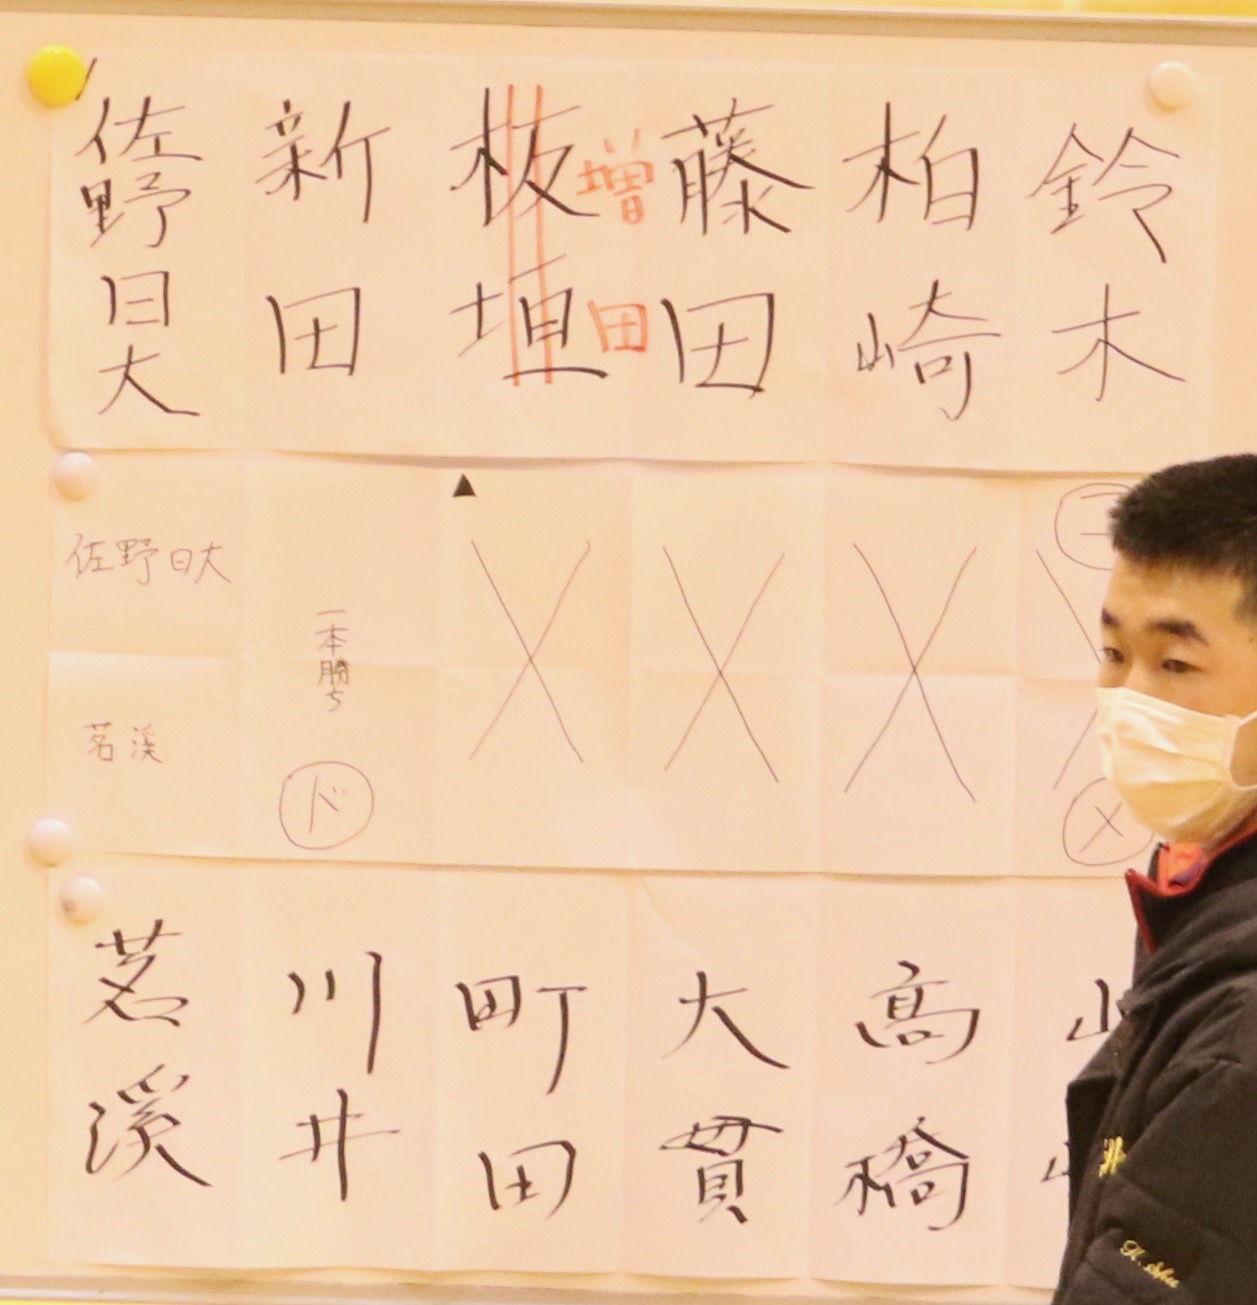 佐野日大
新田
板垣
増田
藤田
柏崎
鈴木
佐野日大
▲
茗溪
一本勝ち
ド
コ
メ
茗溪
川井
町田
大貫
高橋